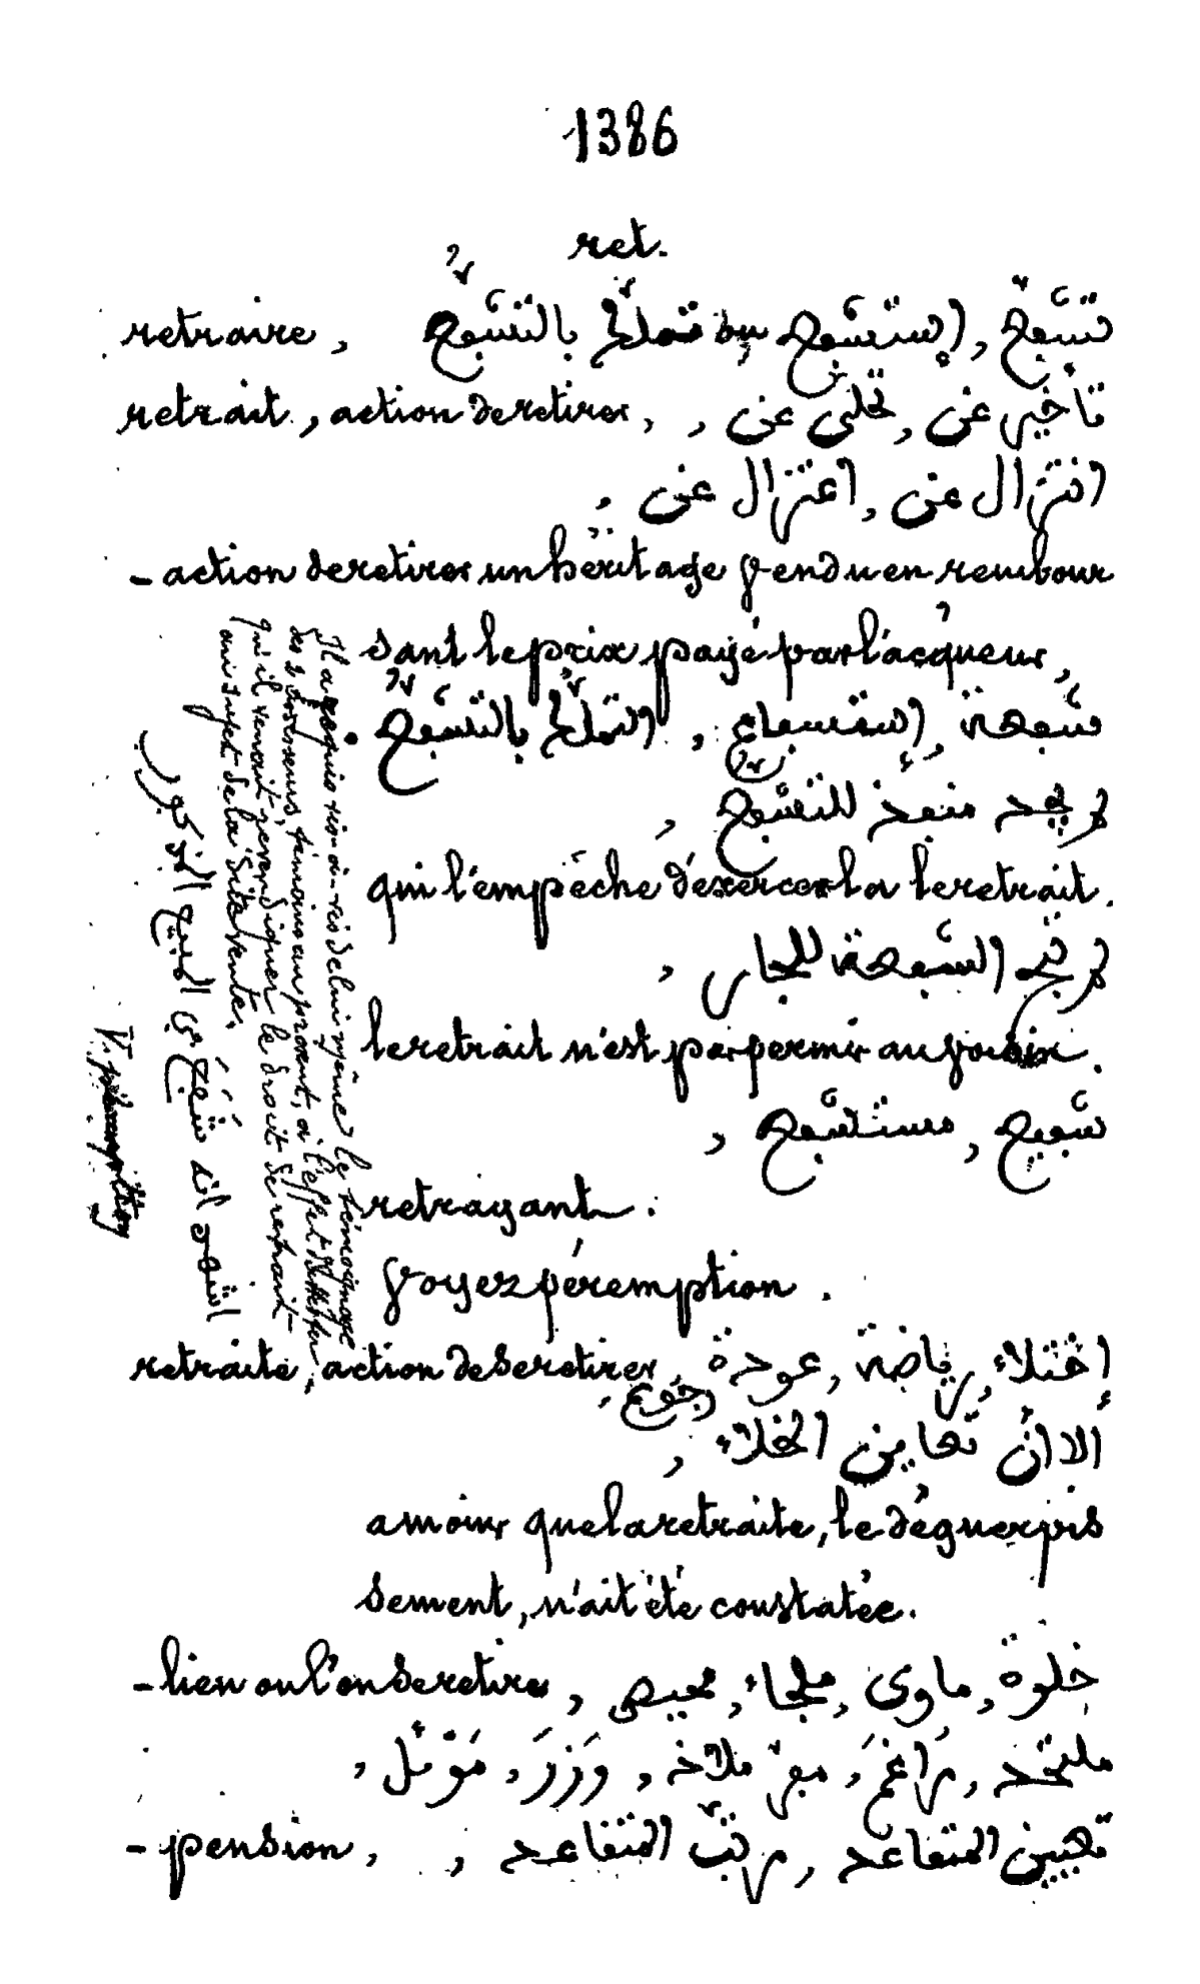 1386
ret.
retraire, تشفّع, إستشفع ou تملّك بالتشفّع
retrait, action de retirer, تاخير عن, تخلّى عن,
انتزال عن, اعتزال عن,
- action de retirer un héritage vendu en rembour
sant le prix payé par l'acqueur,
شفعة, إستشفاع, التملّك بالتشفّع.
لم يجد منفذ للتشفّع,
qui l'empêche d'exercer la le retrait.
لم تجز الشفعة للجار,
le retrait n'est pas permis au voisin.
شفيع, مستشفع,
retrayant.
Voyez péremption.
Il a requis vis-à-vis de lui même le témoignage
des 2 assesseurs, témoins au présent, à l'effet
qu'il venait revendiquer le droit de retrait
au sujet de la dite vente.
اشهد انه شفع في المبيع المذكور
V. préemption
retraite, action de se retirer, إختلاء, رياضة, عودة,
رجوع,
إلا ان تعاين الخلاء,
a moins que la retraite, le déguerpis
sement, n'ait été constatée.
- lieu ou l'on se retire, خلوة, ماوى, ملجاء, محيص,
ملتحد, مراغم, مفرّ, ملاذ, وزر, موئل,
- pension, تعيين المتقاعد, مرتّب المتقاعد,